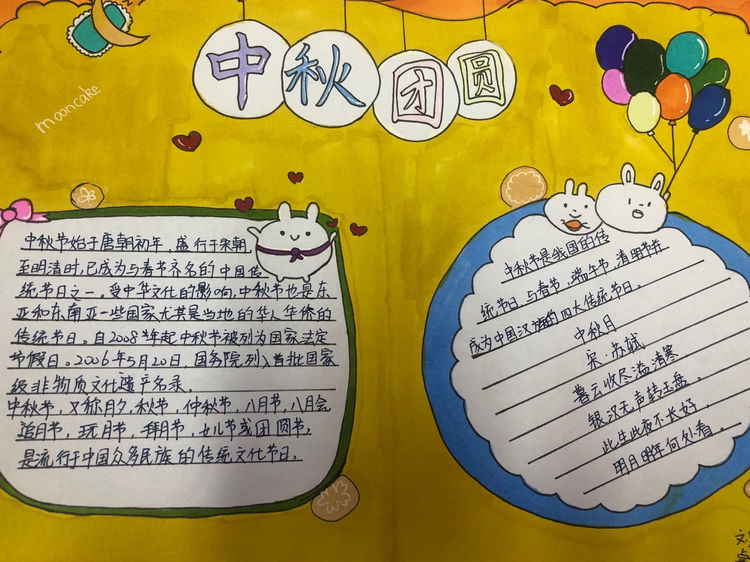 中秋团圆
mooncake
中秋节始于唐朝初年，盛行于宋朝，
至明清时，已成为与春节齐名的中国传
统节日之一。受中华文化的影响，中秋节也是东
亚和东南亚一些国家尤其是当地的华人华侨的
传统节日。自2008年起中秋节被列为国家法定
节假日。2006年5月20日，国务院列入首批国家
级非物质文化遗产名录。
中秋节，又称月夕，秋节，仲秋节，八月节，八月会
追月节，玩月节，拜月节，女儿节或团圆节，
是流行于中国众多民族的传统文化节日。
中秋节是我国的传
统节日。与春节，端午节，清明节并
成为中国汉族的四大传统节日。
中秋月
宋·苏轼
暮云收尽溢清寒，
银汉无声转玉盘。
此生此夜不长好，
明月明年何处看。